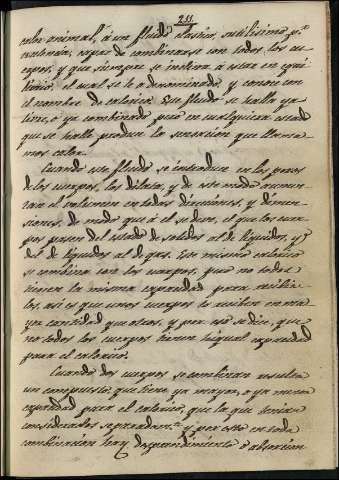 211.
calor animal, á un fluido elastico, sutilisimo p.r
exelencia, capaz de combinarse con todos los cu-
erpos, y que siempre se inclina á estar en equi-
librio. el qual se le á denominado, y conoce con
el nombre de calorico. Este fluido se halla ya
libre, o ya combinado pero en cualquiera estado
que se halle produce la sensacion que llama-
mos calor.
Cuando este fluido se introduce en los poros
de los cuerpos, los dilata, y de este modo aumen-
tan el volumen en todas direcciones, y dimen-
siones, de modo que á el se deve, el que los cuer-
pos pasen del estado de solidos al de liquidos, y
del de liquidos al de gas. Este mismo calorico
se combina con los cuerpos, pero no todos
tienen la misma capacidad para recibir-
los, asi es que unos cuerpos lo reciben en ma-
yor cantidad que otros, y por eso se dice, que
no todos los cuerpos tienen igual capacidad
para el calorico.
Cuando dos cuerpos se combinan resulta
un compuesto, que tiene ya mayor, o ya menor
capacidad para el calorico, que la que tenian
considerados separadam.te y por esto en toda
combinacion hay desprendimiento o absorcion